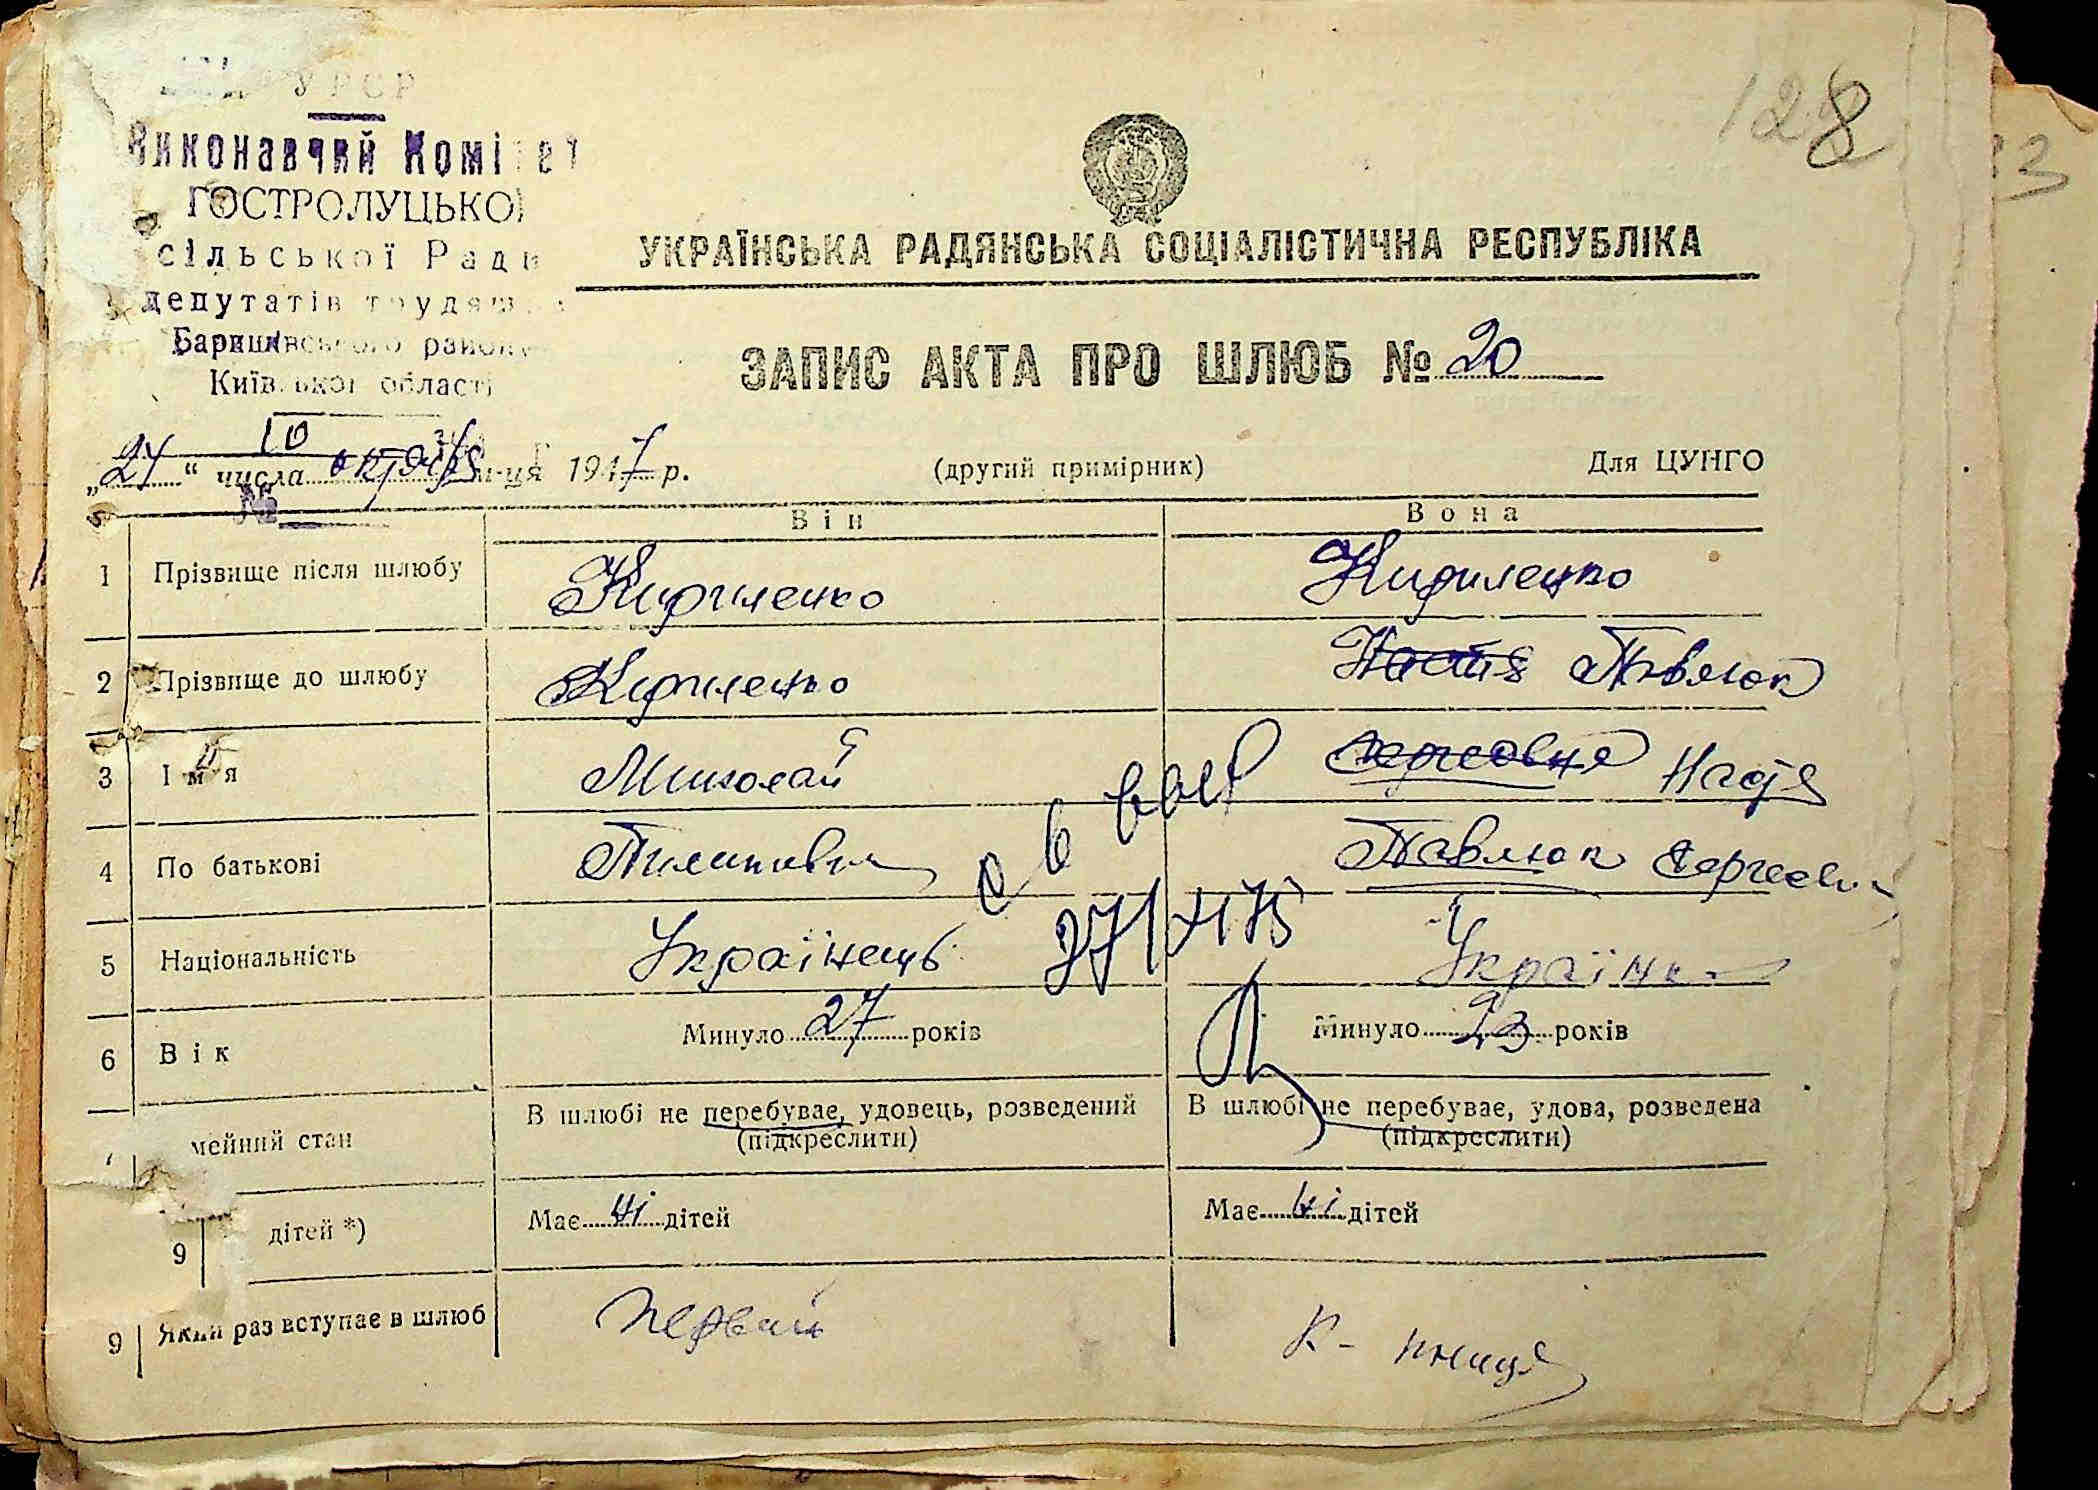 УРСР
Виконавчий Комітет
ГОСТРОЛУЦЬКОЇ
сільської Ради
депутатів трудящ
Баришівського району
Київської області
128
33
УКРАЇНСЬКА РАДЯНСЬКА СОЦІАЛІСТИЧНА РЕСПУБЛІКА
ЗАПИС АКТА ПРО ШЛЮБ № 20
10
„27“ числа октября м-ця 1947 р.
(другий примірник)
Для ЦУНГО
№
Він
Вона
1 Прізвище після шлюбу Кириленко Кириленко
2 Прізвище до шлюбу Кириленко Настя Павлюк
3 Ім'я Миколай Сергеевна Надя
4 По батькові Пилипович Павлюк Сергеевн
5 Національність Українець Українка
27/XI 75
6 Вік Минуло 27 років Минуло 23 років
мейний стан В шлюбі не перебуває, удовець, розведений В шлюбі не перебуває, удова, розведена
(підкреслити) (підкреслити)
9 дітей *) Має ні дітей Має ні дітей
9 Який раз вступає в шлюб первый